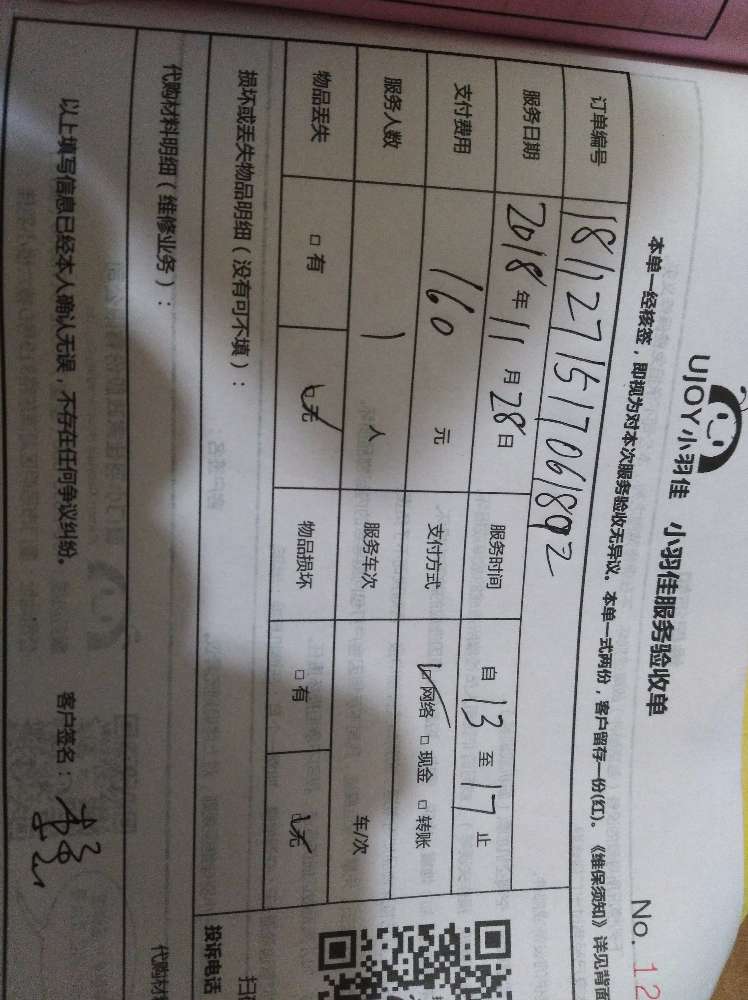 UJOY小羽佳 小羽佳服务验收单
No. 12
本单一经核签，即视为对本次服务验收无异议。本单一式两份，客户留存一份(红)。《维保须知》详见背面
订单编号 1811271517061892
服务日期 2018年11月28日 服务时间 自13至17止
支付费用 160元 支付方式 网络 □现金 □转账
服务人数 1人 服务车次 车/次
物品丢失 □有 无 物品损坏 □有 无
损坏或丢失物品明细（没有可不填）：
代购材料明细（维修业务）：
投诉电话
代购材
以上填写信息已经本人确认无误，不存在任何争议纠纷。 客户签名：